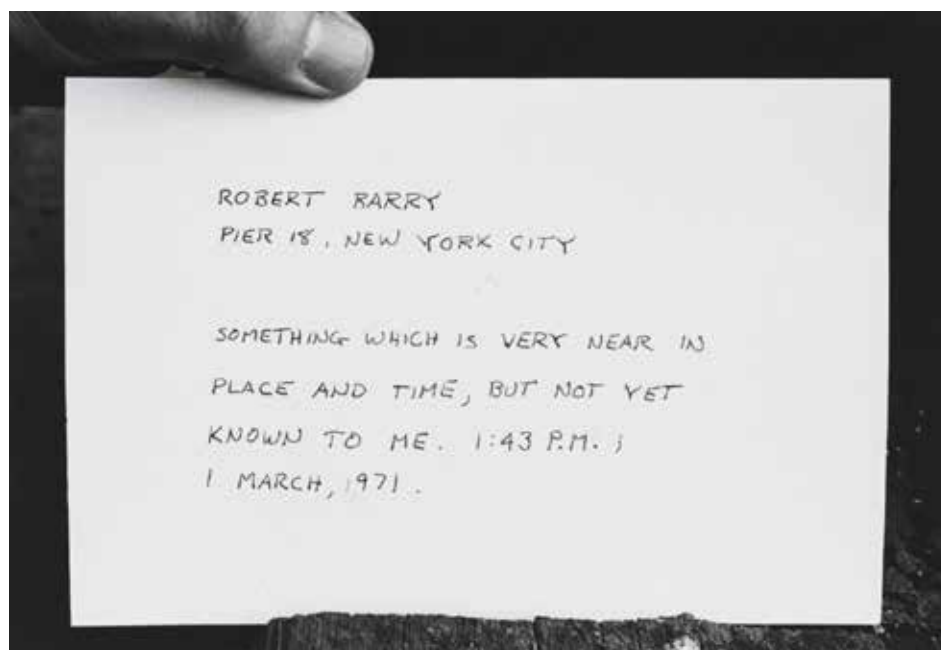 ROBERT BARRY
PIER 18, NEW YORK CITY
SOMETHING WHICH IS VERY NEAR IN
PLACE AND TIME, BUT NOT YET
KNOWN TO ME. 1:43 P.M.;
1 MARCH, 1971.